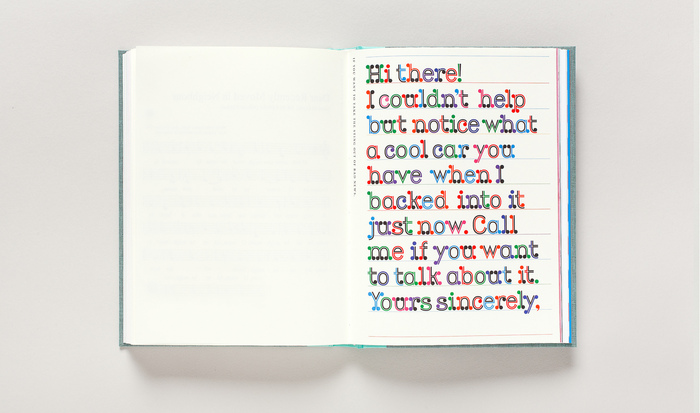 Hi there!
I couldn't help
but notice what
a cool car you
have when I
backed into it
just now. Call
me if you want
to talk about it.
Yours sincerely,